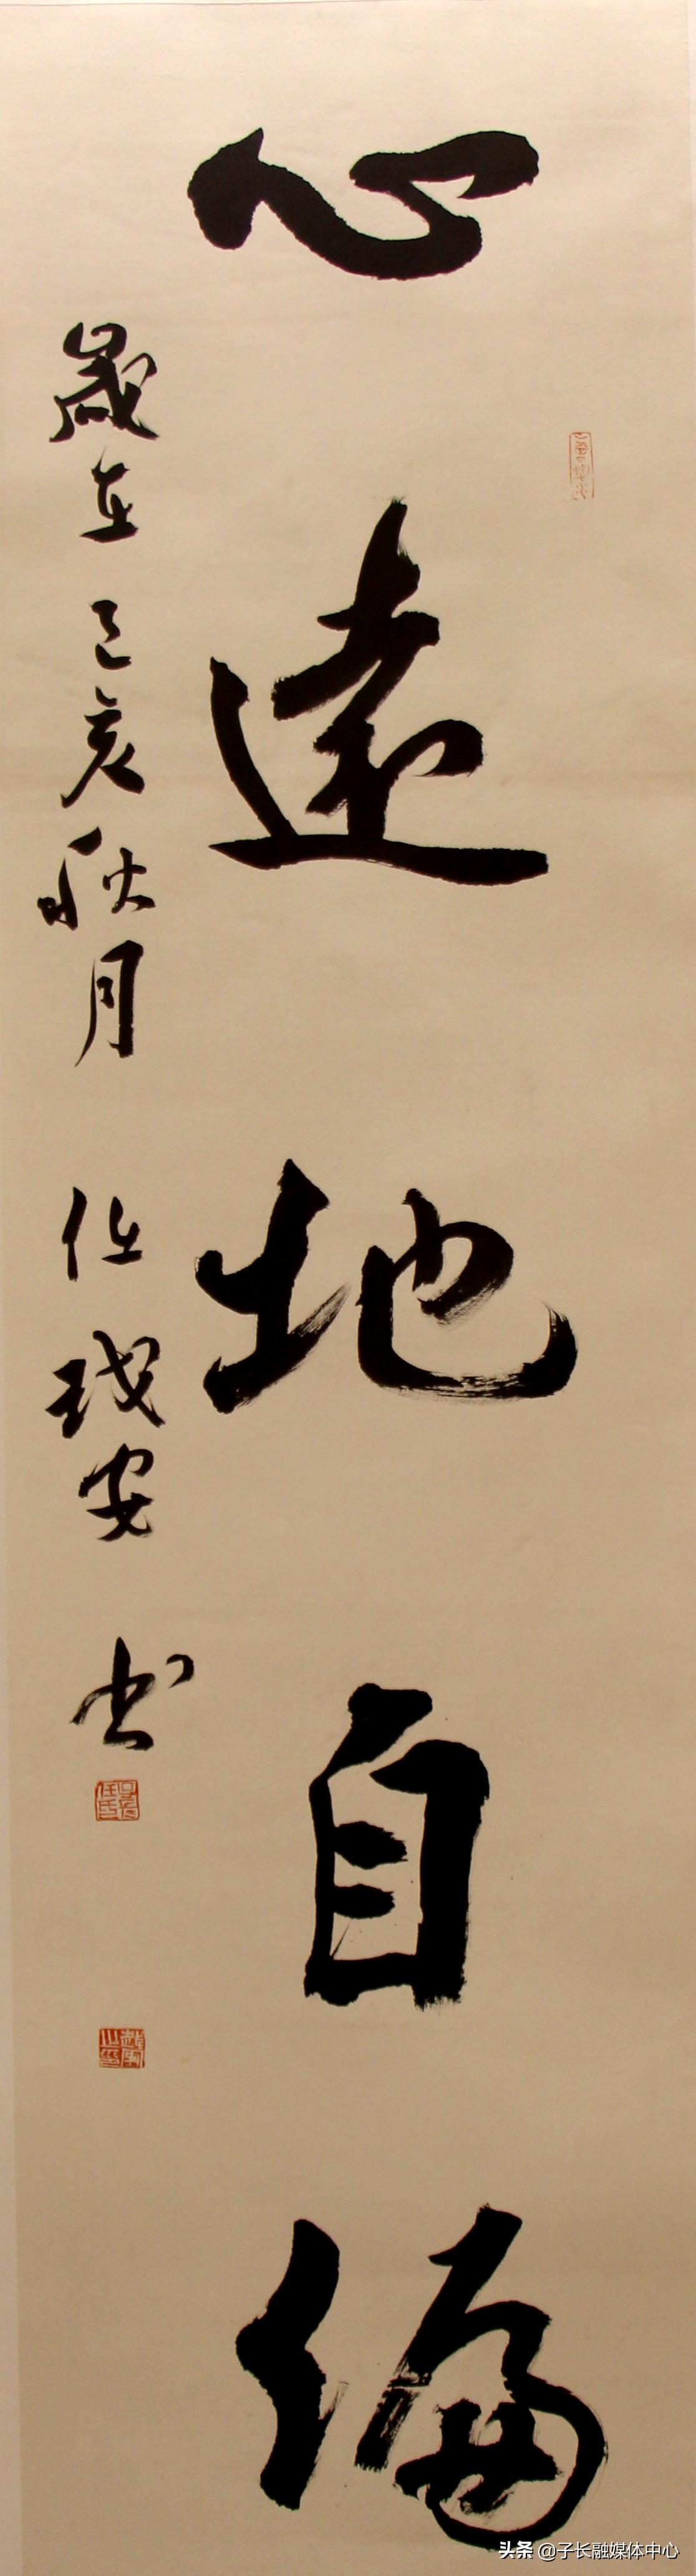 心遠地自偏
歲在己亥秋月 任 安 书
头条 @子长融媒体中心